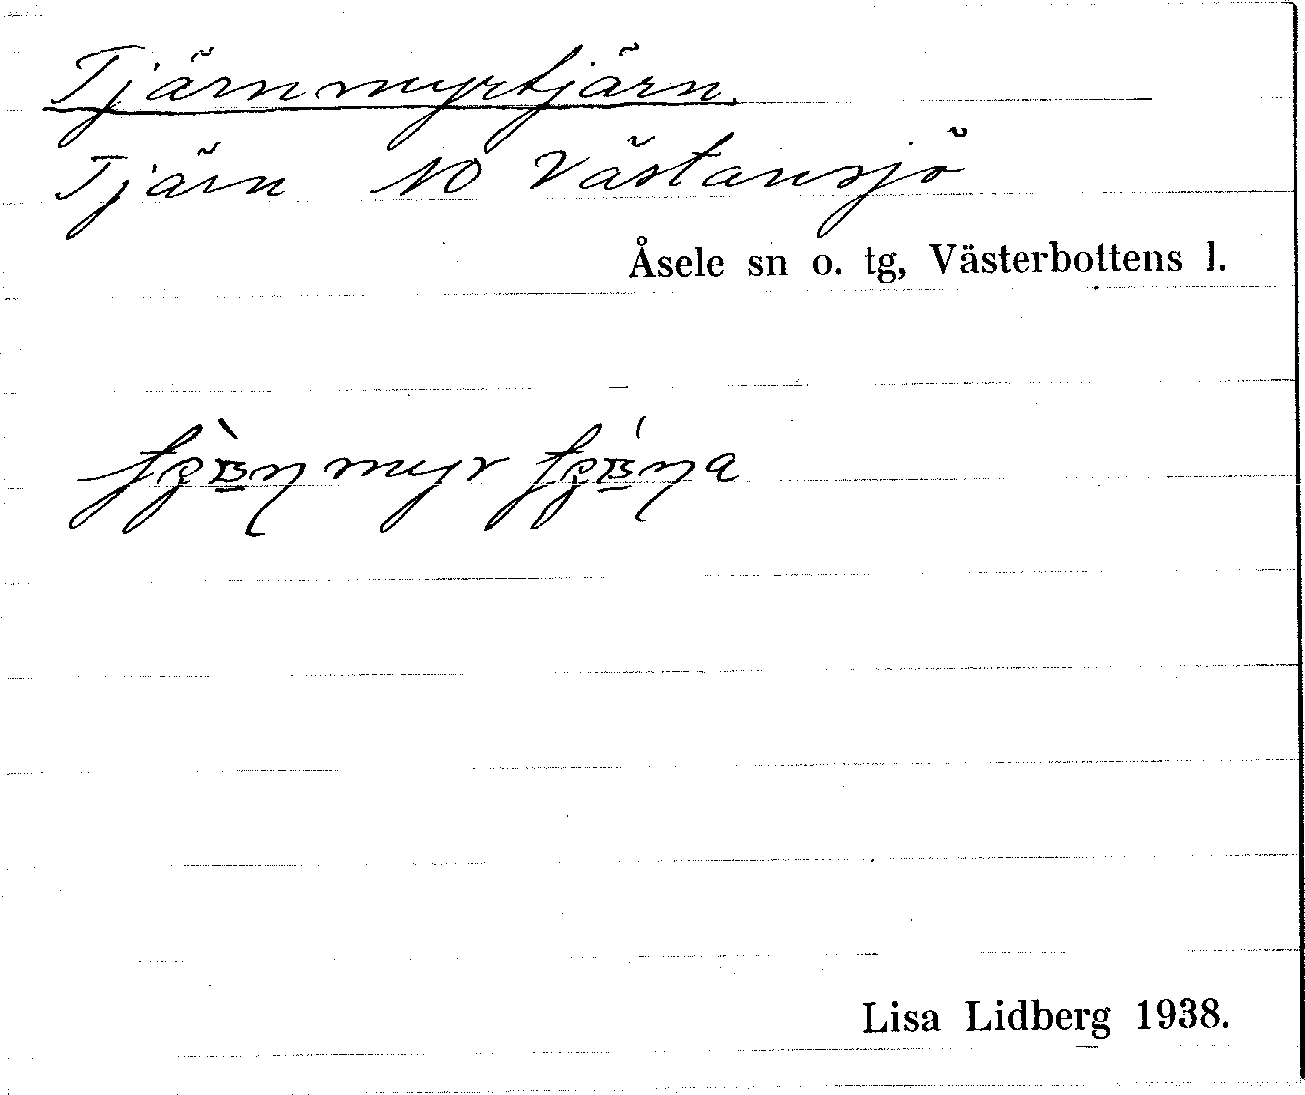 Tjärnmyrtjärn.
Tjärn NO Västansjö
Åsele sn o. tg, Västerbottens l.
Lisa Lidberg 1938.